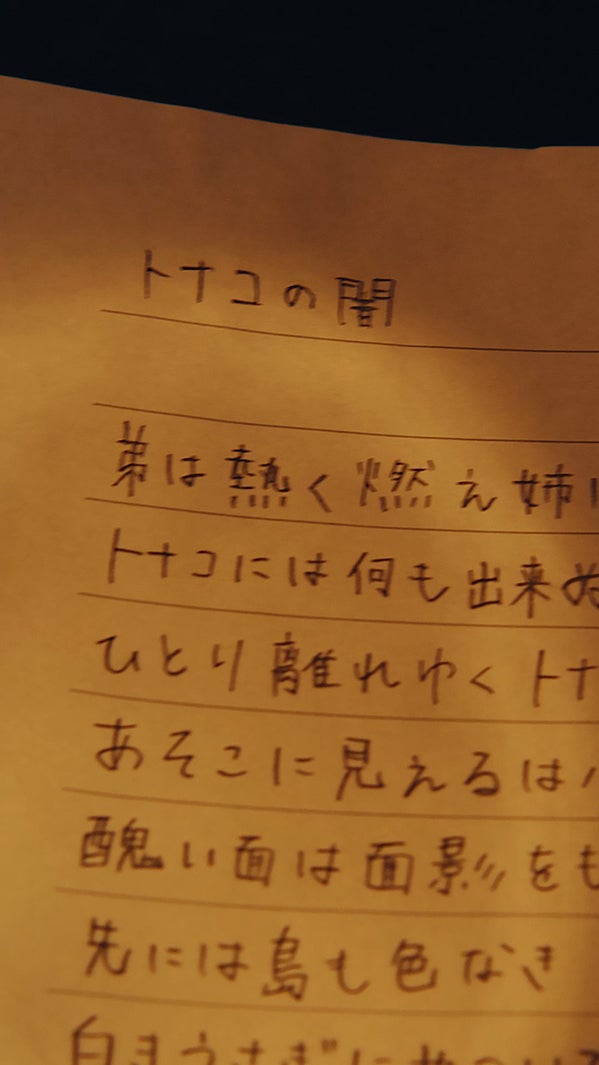 トナコの闇
弟は熱く燃え姉
トナコには何も出来ぬ
ひとり離れゆくトナ
あそこに見えるは
醜い面は面影をも
先には鳥も色なき